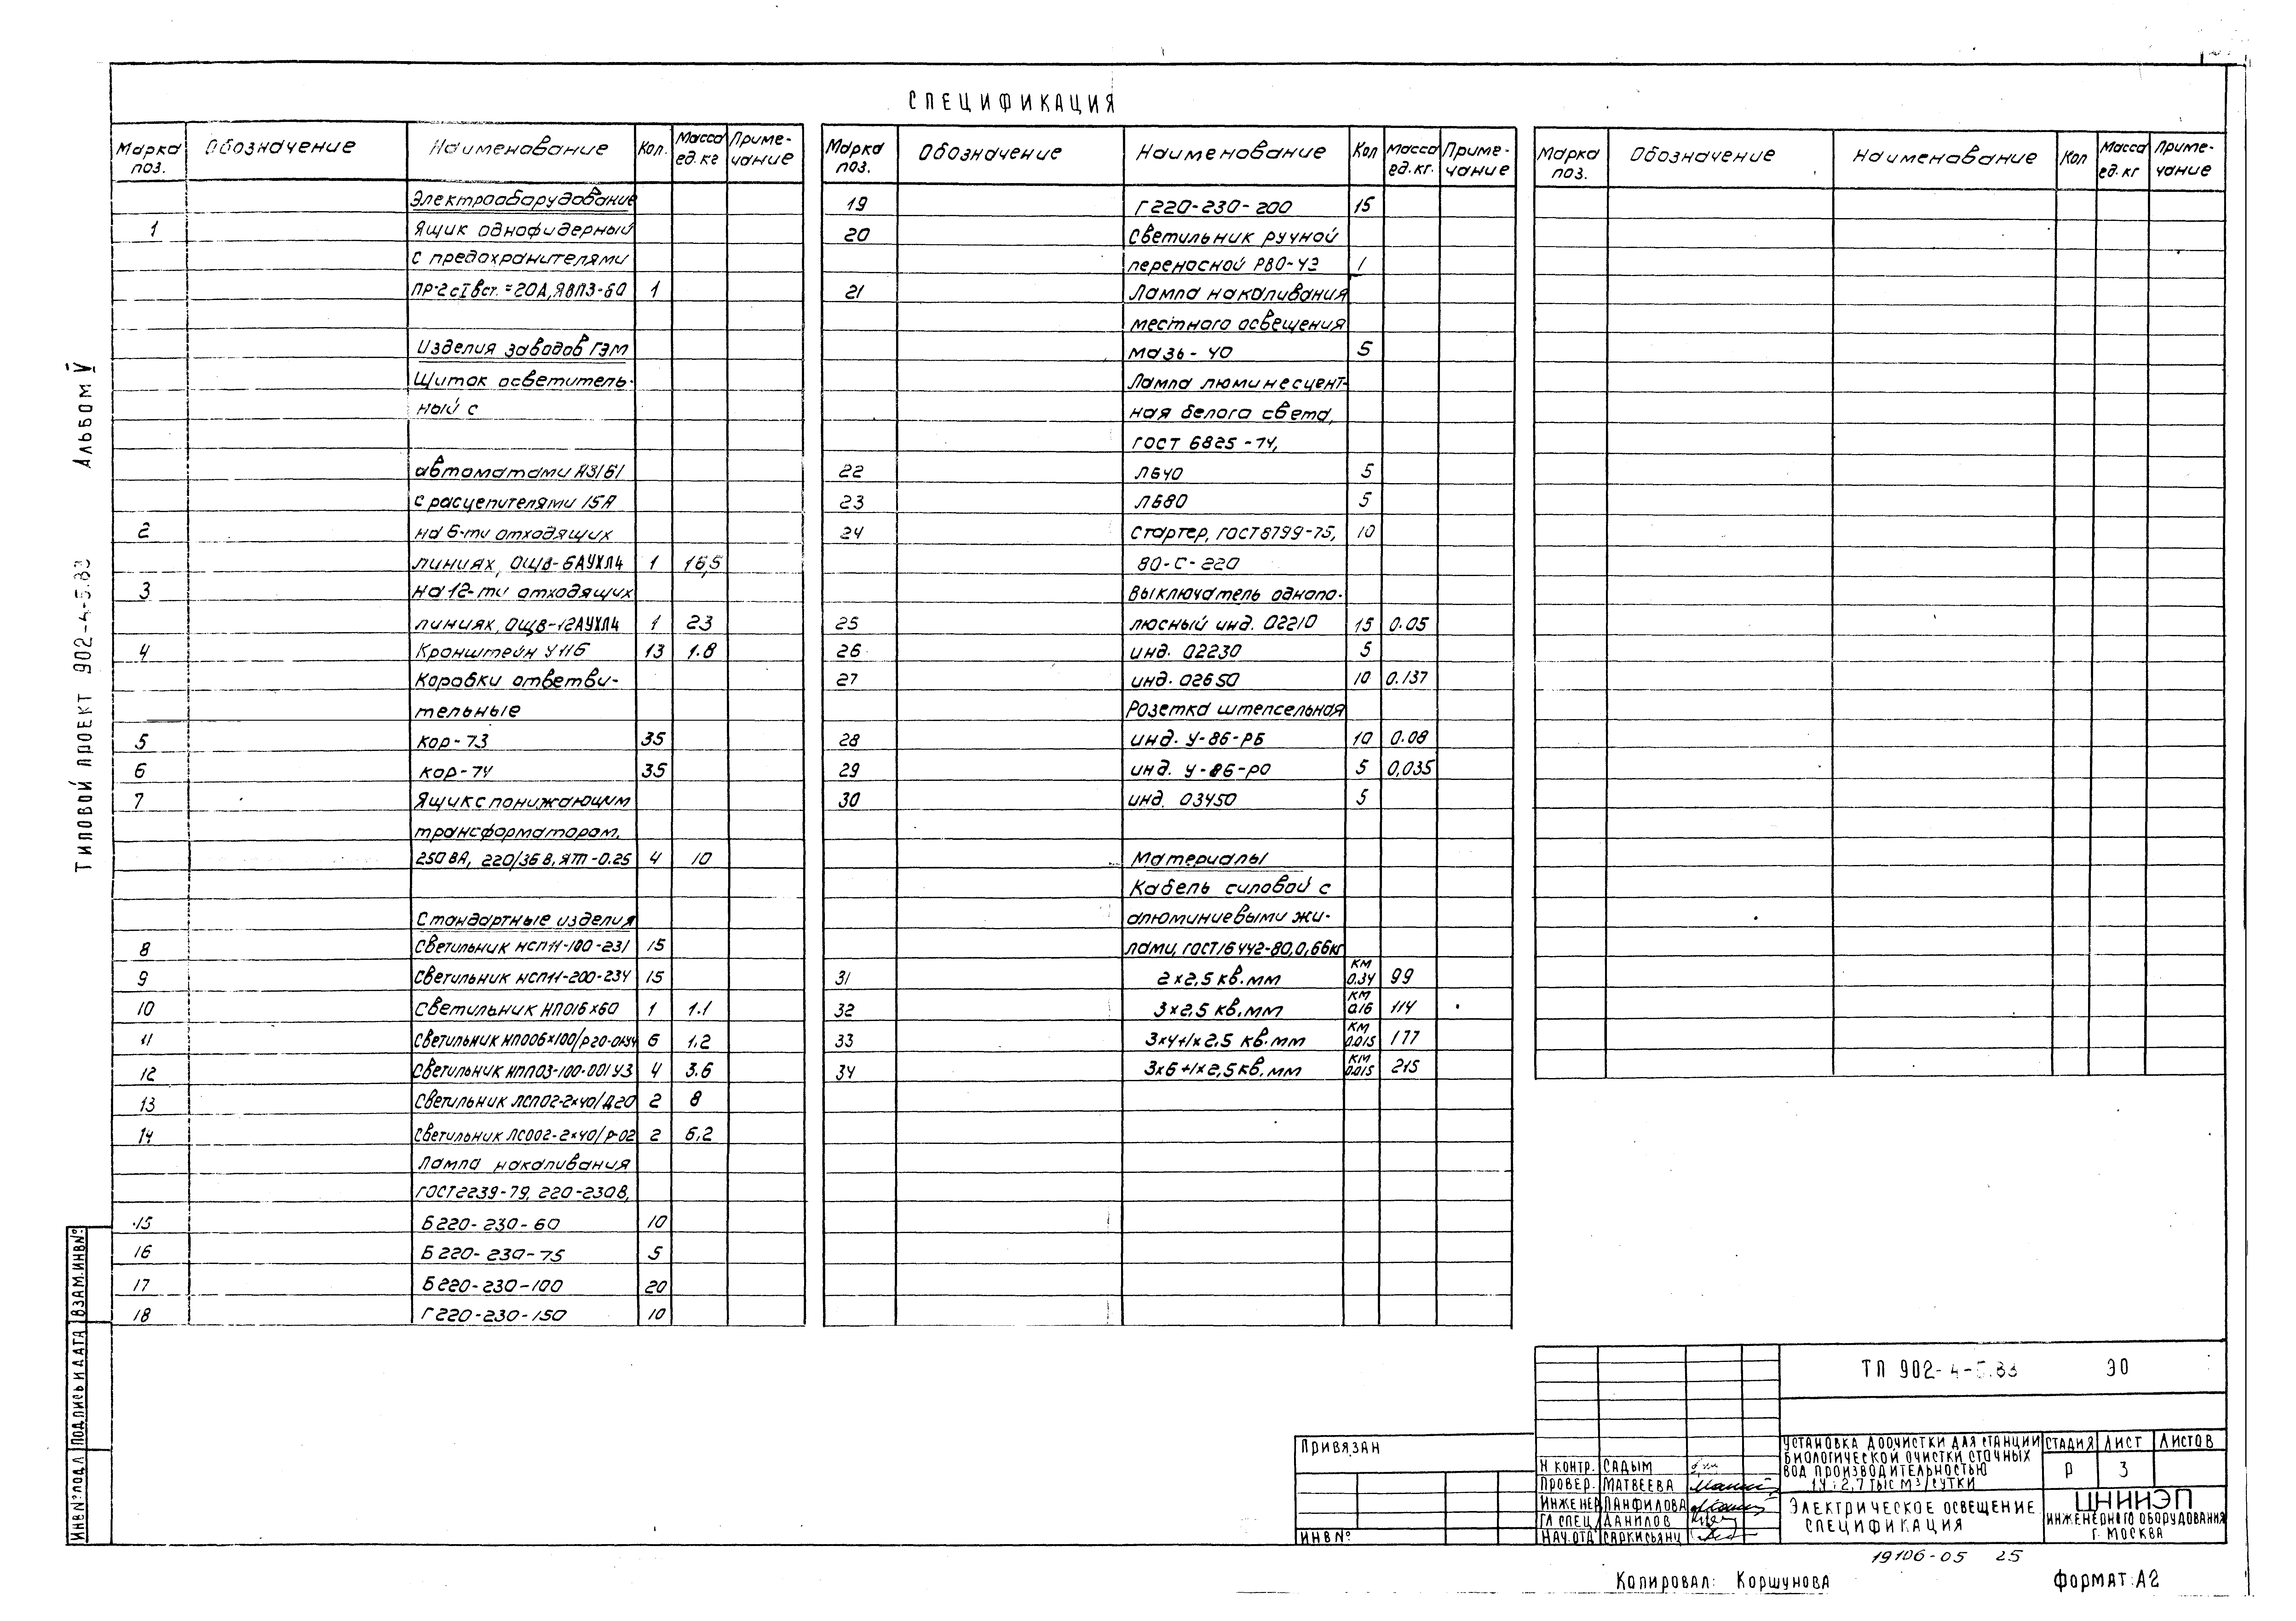 СПЕЦИФИКАЦИЯ
Марка поз. Обозначение Наименование Кол. Масса ед.кг Приме-чание
Электрооборудование
1 Ящик однофидерный
с предохранителями
ПР-2 с Iвст.=20А, ЯВПЗ-60 1
Изделия заводов ГЭМ
Щиток осветитель-
ный с
автоматами А3161
с расцепителями 15А
2 на 6-ти отходящих
линиях, ОЩВ-6АУХЛ4 1 16,5
3 на 12-ти отходящих
линиях, ОЩВ-12АУХЛ4 1 23
4 Кронштейн У116 13 1.8
Коробки ответви-
тельные
5 КОР-73 35
6 КОР-74 35
7 Ящик с понижающим
трансформатором,
250 ВА, 220/36 В, ЯТП-0.25 4 10
Стандартные изделия
8 Светильник НСП11-100-231 15
9 Светильник НСП11-200-234 15
10 Светильник НПО16×60 1 1.1
11 Светильник НПО06×100/Р20-01У4 6 1.2
12 Светильник НПП03-100-001У3 4 3.6
13 Светильник ЛСП02-2×40/Д20 2 8
14 Светильник ЛСО02-2×40/Р-02 2 6.2
Лампа накаливания
ГОСТ 2239-79, 220-230В,
15 Б220-230-60 10
16 Б220-230-75 5
17 Б220-230-100 20
18 Г220-230-150 10
Марка поз. Обозначение Наименование Кол Масса ед.кг. Приме-чание
19 Г220-230-200 15
20 Светильник ручной
переносной РВО-42 1
21 Лампа накаливания
местного освещения
МО36-40 5
Лампа люминесцент-
ная белого света,
ГОСТ 6825-74,
22 ЛБ40 5
23 ЛБ80 5
24 Стартер, ГОСТ 8799-75, 10
80-С-220
Выключатель однопо-
25 люсный инд. 02210 15 0.05
26 инд. 02230 5
27 инд. 02650 10 0.137
Розетка штепсельная
28 инд. У-86-РБ 10 0.08
29 инд. У-86-РО 5 0,035
30 инд. 03450 5
Материалы
Кабель силовой с
алюминиевыми жи-
лами, ГОСТ 16442-80, 0,66кг
31 2×2,5 кв.мм км 0.34 99
32 3×2,5 кв.мм км 0.16 114
33 3×4+1×2.5 кв.мм км 0.015 177
34 3×6+1×2,5 кв.мм км 0.015 215
Марка поз. Обозначение Наименование Кол Масса ед.кг Приме-чание
Альбом V
ТИПОВОЙ ПРОЕКТ 902-4-5.83
ИНВ№ПОДЛ ПОДПИСЬ И ДАТА ВЗАМ.ИНВ№
ПРИВЯЗАН
ИНВ№
ТП 902-4-5.83 ЭО
Н КОНТР. САДЫМ
ПРОВЕР. МАТВЕЕВА
ИНЖЕНЕР ПАНФИЛОВА
ГЛ СПЕЦ ДАНИЛОВ
НАЧ.ОТД САРКИСЬЯНЦ
УСТАНОВКА ДООЧИСТКИ ДЛЯ СТАНЦИИ
БИОЛОГИЧЕСКОЙ ОЧИСТКИ СТОЧНЫХ
ВОД ПРОИЗВОДИТЕЛЬНОСТЬЮ
1,4; 2,7 ТЫС М³/СУТКИ
СТАДИЯ ЛИСТ ЛИСТОВ
Р 3
ЭЛЕКТРИЧЕСКОЕ ОСВЕЩЕНИЕ
СПЕЦИФИКАЦИЯ
ЦНИИЭП
ИНЖЕНЕРНОГО ОБОРУДОВАНИЯ
Г. МОСКВА
19106-05 25
КОПИРОВАЛ: КОРШУНОВА
ФОРМАТ:А2